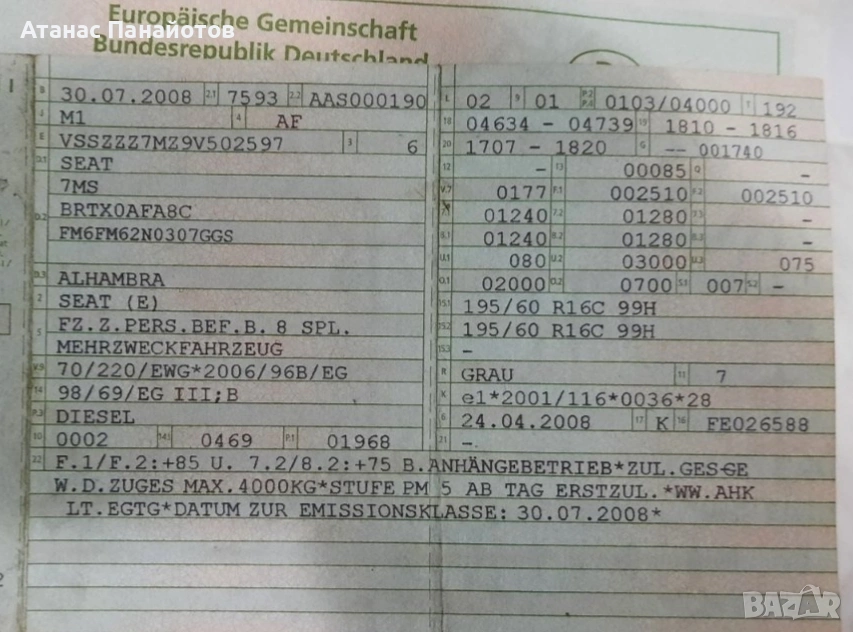 Атанас Панайотов
Europäische Gemeinschaft
Bundesrepublik Deutschland
B 30.07.2008 2.1 7593 2.2 AAS000190 L 02 9 01 P.2 P.4 0103/04000 T 192
J M1 4 AF 18 04634 - 04739 19 1810 - 1816
E VSSZZZ7MZ9V502597 3 6 20 1707 - 1820 G -- 001740
D.1 SEAT 12 - 13 00085 Q -
7MS V.7 0177 F.1 002510 F.2 002510
D.2 BRTX0AFA8C 7.1 01240 7.2 01280 7.3 -
FM6FM62N0307GGS 8.1 01240 8.2 01280 8.3 -
U.1 080 U.2 03000 U.3 075
D.3 ALHAMBRA O.1 02000 O.2 0700 S.1 007 S.2 -
2 SEAT (E) 15.1 195/60 R16C 99H
5 FZ.Z.PERS.BEF.B. 8 SPL. 15.2 195/60 R16C 99H
MEHRZWECKFAHRZEUG 15.3 -
V.9 70/220/EWG*2006/96B/EG R GRAU 11 7
14 98/69/EG III;B K e1*2001/116*0036*28
P.3 DIESEL 6 24.04.2008 17 K 16 FE026588
10 0002 14.1 0469 P.1 01968 21 -
22 F.1/F.2:+85 U. 7.2/8.2:+75 B.ANHÄNGEBETRIEB*ZUL.GES-GE
W.D.ZUGES MAX.4000KG*STUFE PM 5 AB TAG ERSTZUL.*WW.AHK
LT.EGTG*DATUM ZUR EMISSIONSKLASSE: 30.07.2008*
BAZAR